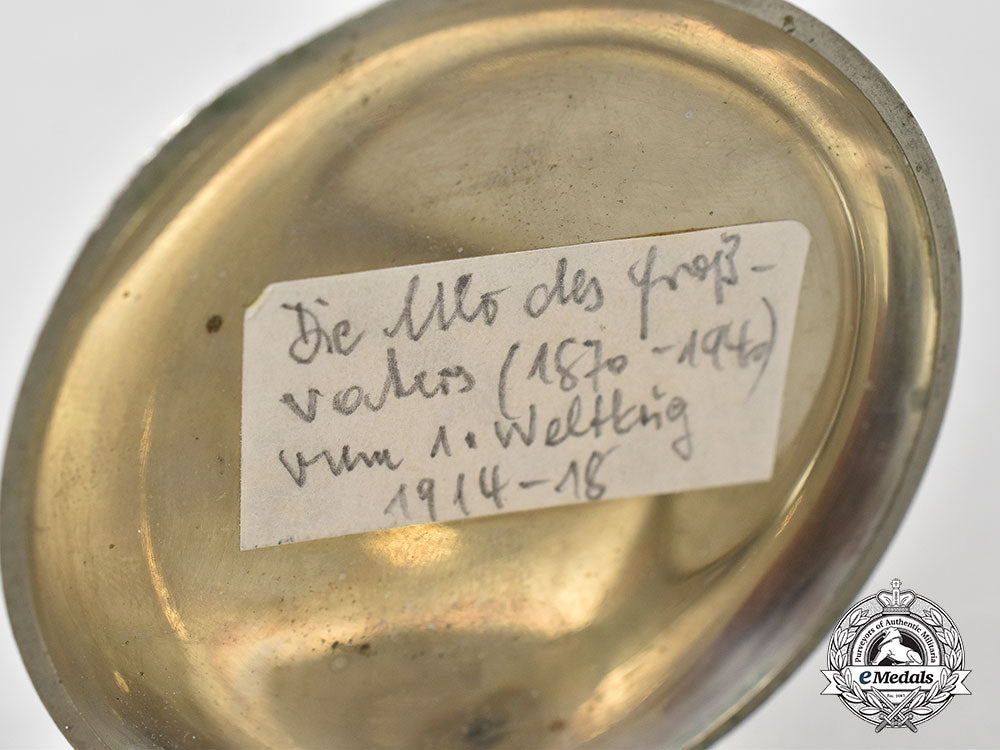 Die Uhr des Groß-
vaters (1870-1940)
vom 1. Weltkrieg
1914-18
Purveyors of Authentic Militaria
eMedals